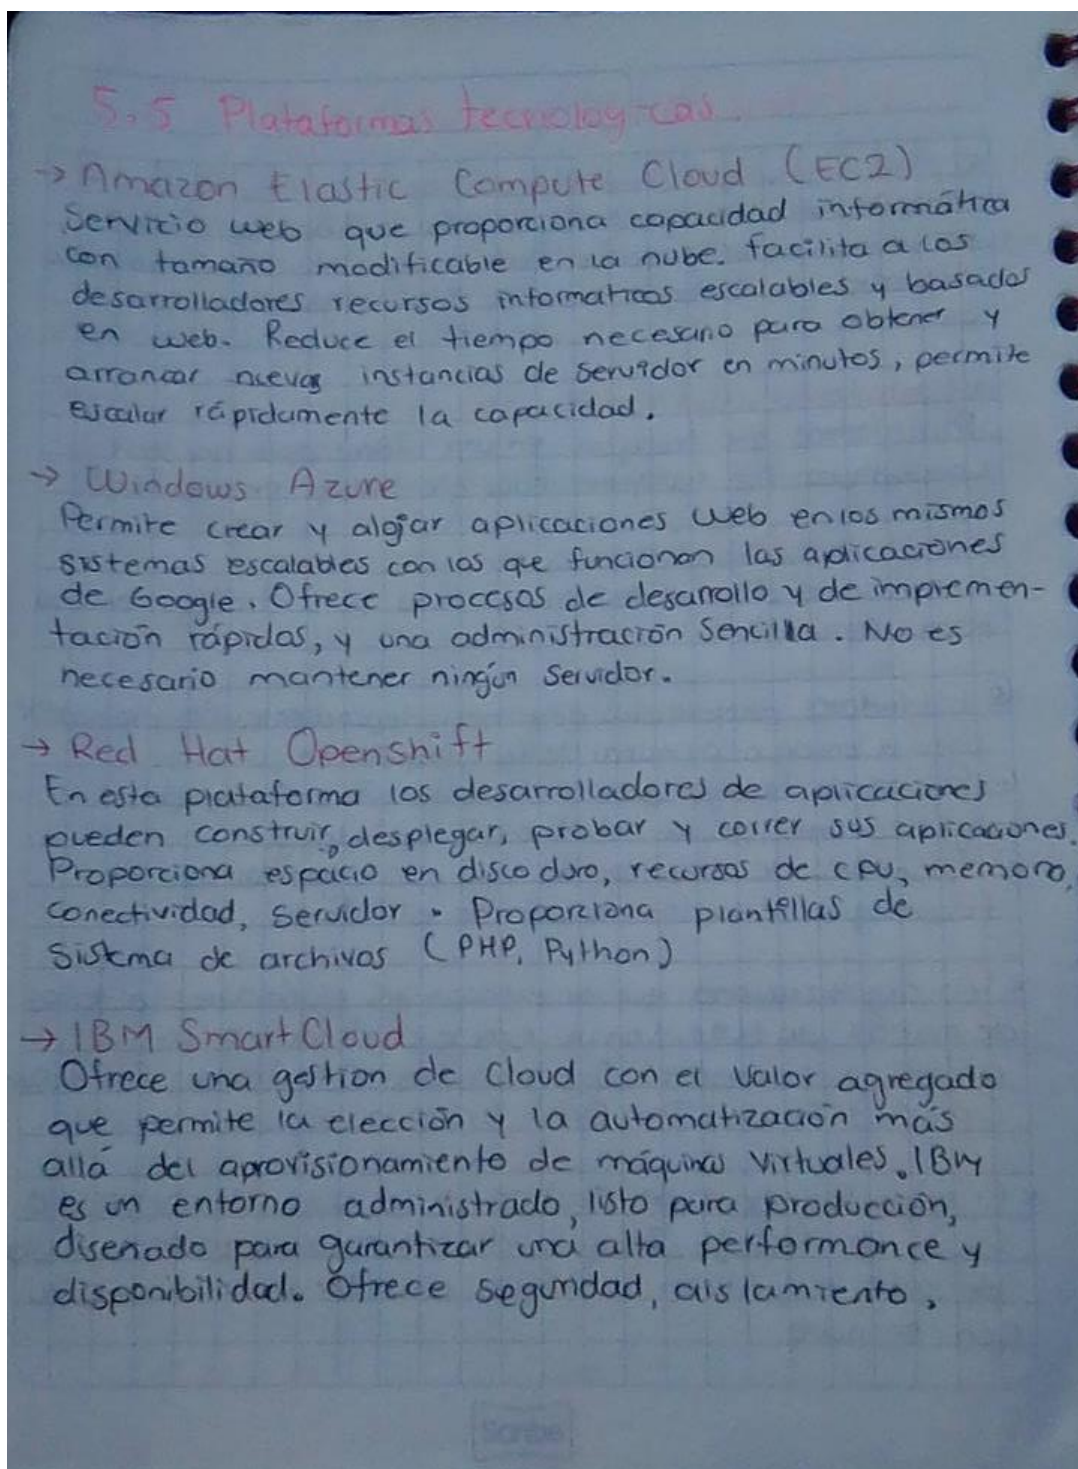 5.5 Plataformas tecnologicas.
→ Amazon Elastic Compute Cloud (EC2)
Servicio web que proporciona capacidad informática
con tamaño modificable en la nube. facilita a los
desarrolladores recursos informaticos escalables y basados
en web. Reduce el tiempo necesario para obtener y
arrancar nuevas instancias de servidor en minutos, permite
escalar rápidamente la capacidad.
→ Windows Azure
Permite crear y alojar aplicaciones web en los mismos
sistemas escalables con los que funcionan las aplicaciones
de Google. Ofrece procesos de desarrollo y de impremen-
tación rápidas, y una administración sencilla. No es
necesario mantener ningún servidor.
→ Red Hat Openshift
En esta plataforma los desarrolladores de aplicaciones
pueden construir, desplegar, probar y correr sus aplicaciones.
Proporciona espacio en disco duro, recursos de CPU, memoria,
conectividad, servidor. Proporciona plantillas de
sistema de archivos (PHP, Python)
→ IBM SmartCloud
Ofrece una gestion de Cloud con el valor agregado
que permite la elección y la automatización más
allá del aprovisionamiento de máquinas virtuales. IBM
es un entorno administrado, listo para producción,
diseñado para garantizar una alta performance y
disponibilidad. Ofrece seguridad, aislamiento,
Scribe